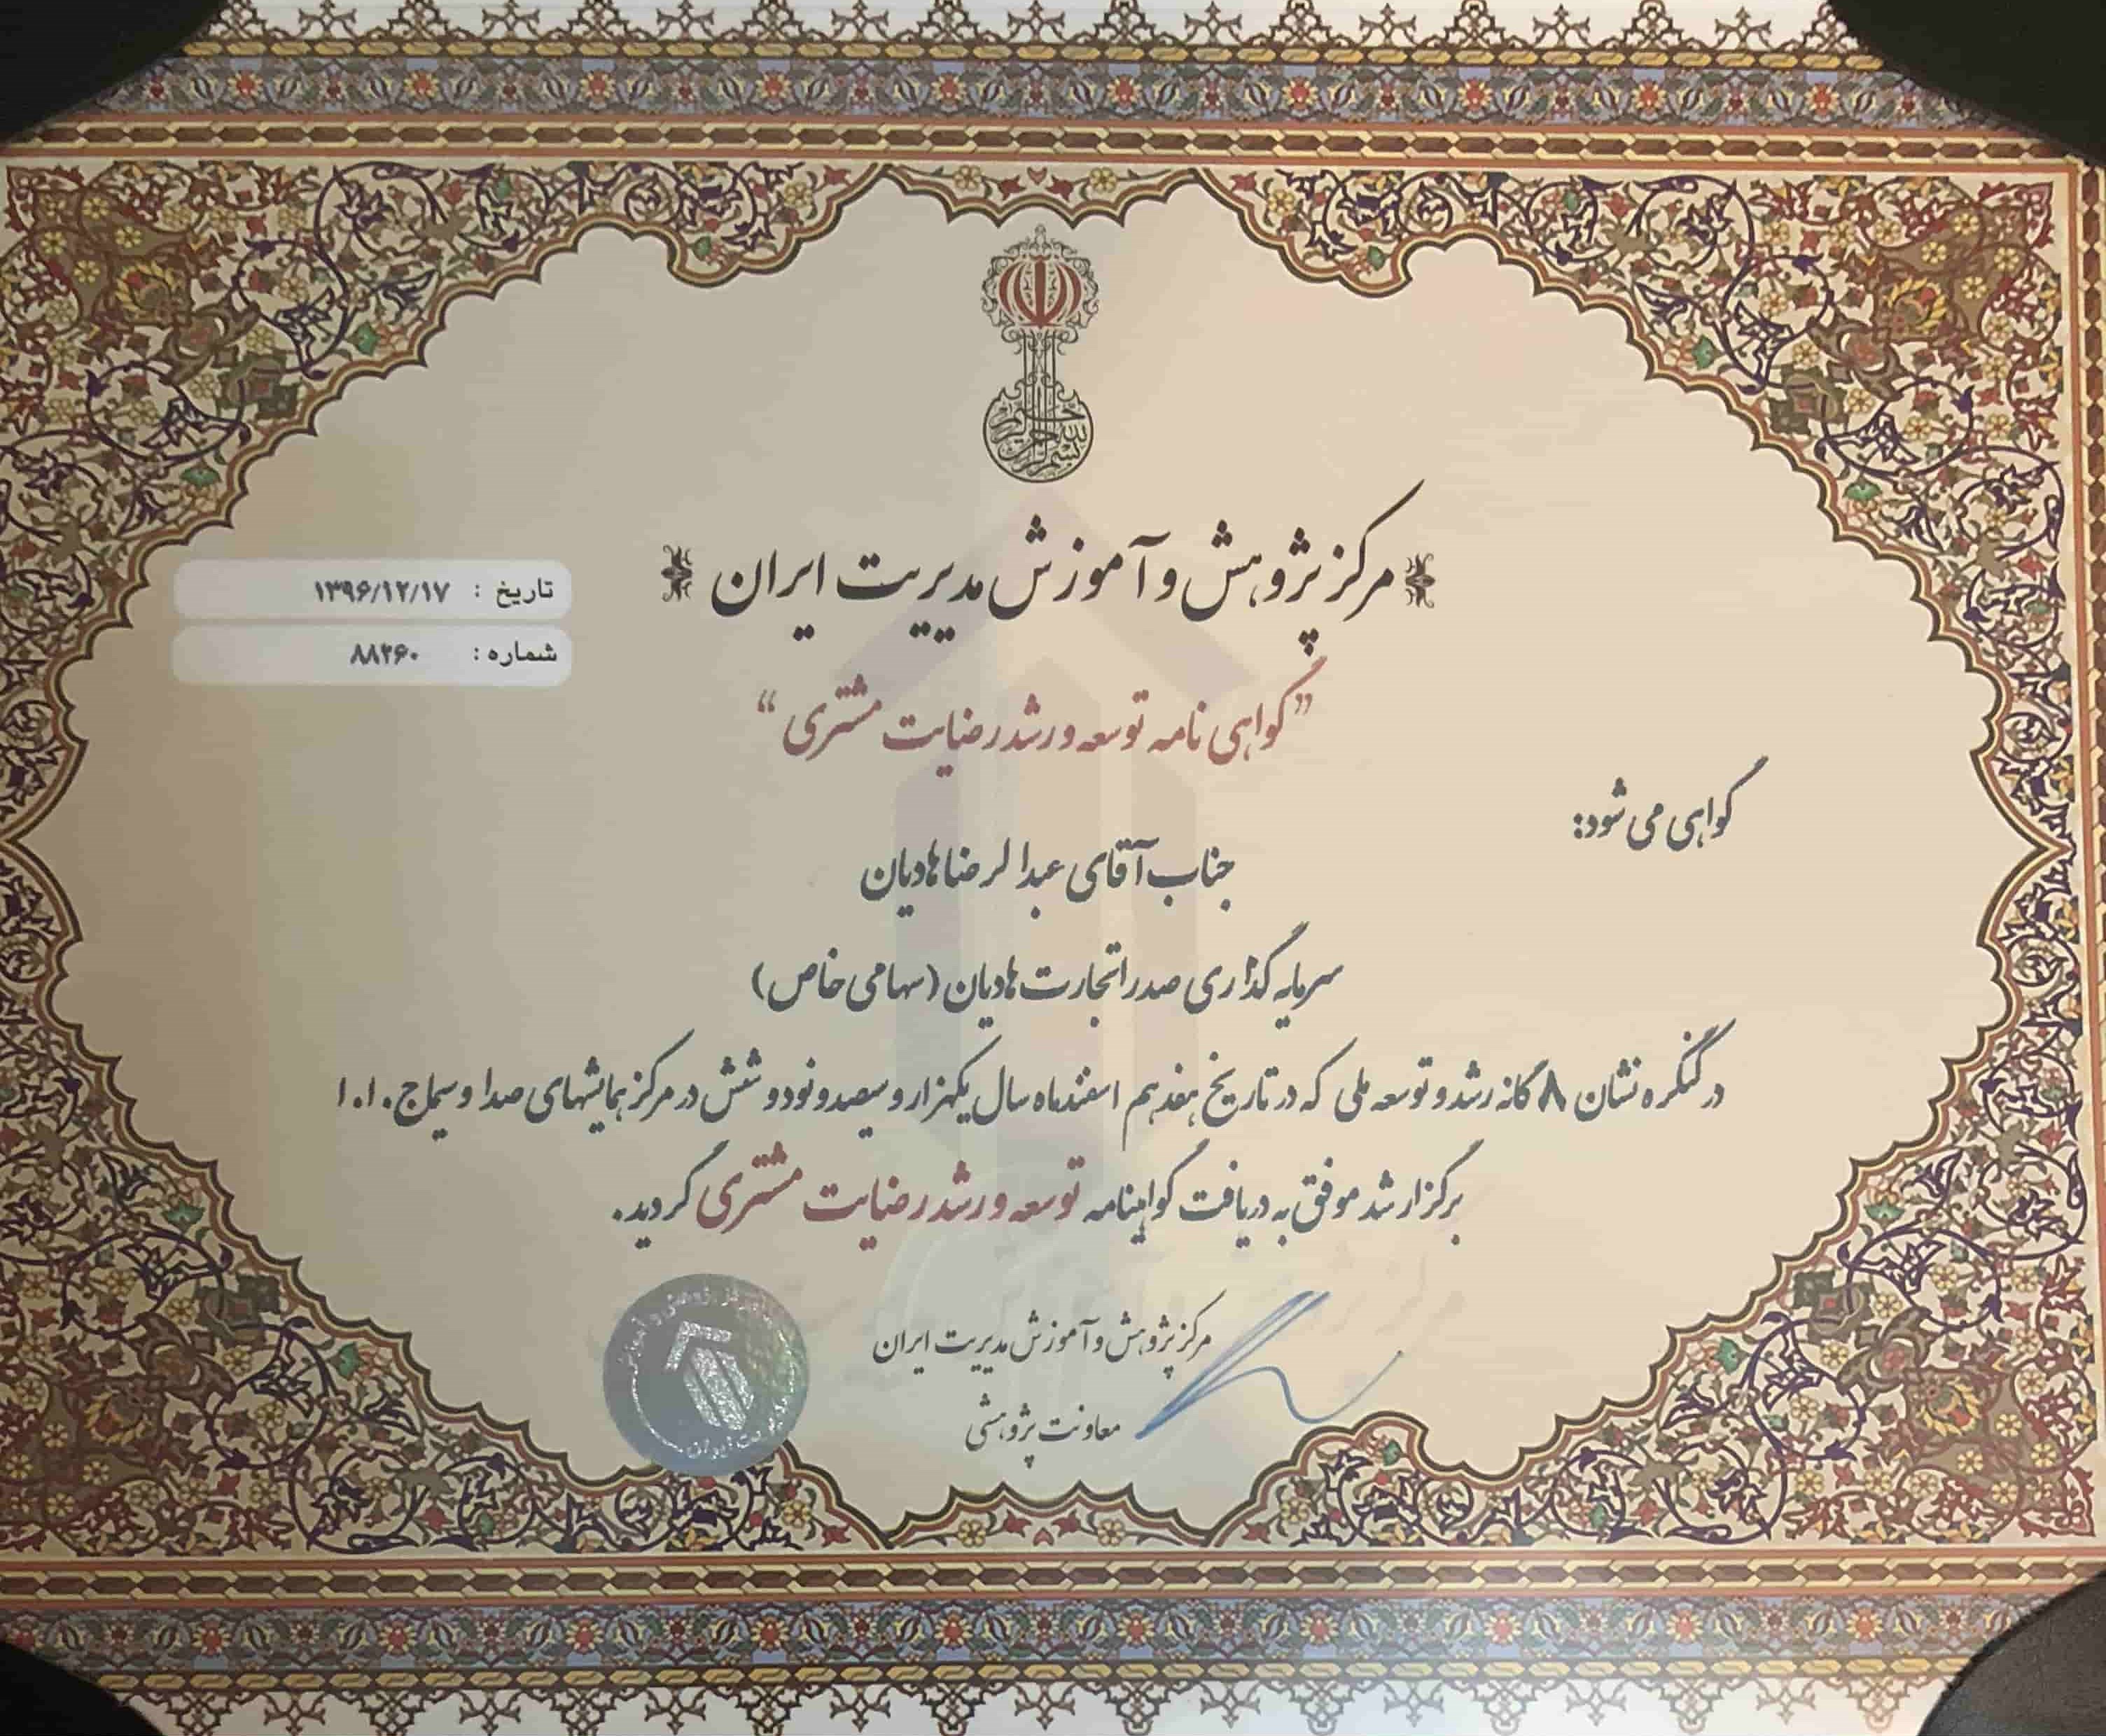 بسم الله الرحمن الرحیم
مرکز پژوهش و آموزش مدیریت ایران
تاریخ : ۱۳۹۶/۱۲/۱۷
شماره : ۸۸۲۶۰
"گواهی نامه توسعه و رشد رضایت مشتری"
گواهی می شود:
جناب آقای عبدالرضا هادیان
سرمایه گذاری صدرا تجارت هادیان (سهامی خاص)
در کنگره نشان ۸ گانه رشد و توسعه ملی که در تاریخ هفدهم اسفندماه سال یکهزار و سیصد و نود و شش در مرکز همایشهای صدا و سیما ج.ا.ا
برگزار شد موفق به دریافت گواهینامه توسعه و رشد رضایت مشتری گردید.
مرکز پژوهش و آموزش مدیریت ایران
معاونت پژوهشی